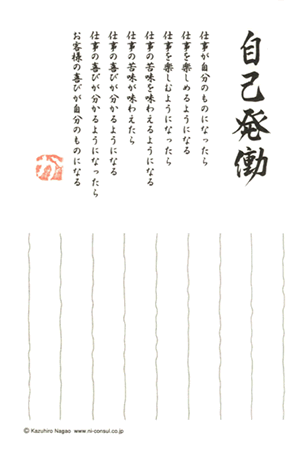 自己発働
仕事が自分のものになったら
仕事を楽しめるようになる
仕事を楽しむようになったら
仕事の苦味を味わえるようになる
仕事の苦味が味わえたら
仕事の喜びが分かるようになる
仕事の喜びが分かるようになったら
お客様の喜びが自分のものになる
か
© Kazuhiro Nagao www.ni-consul.co.jp